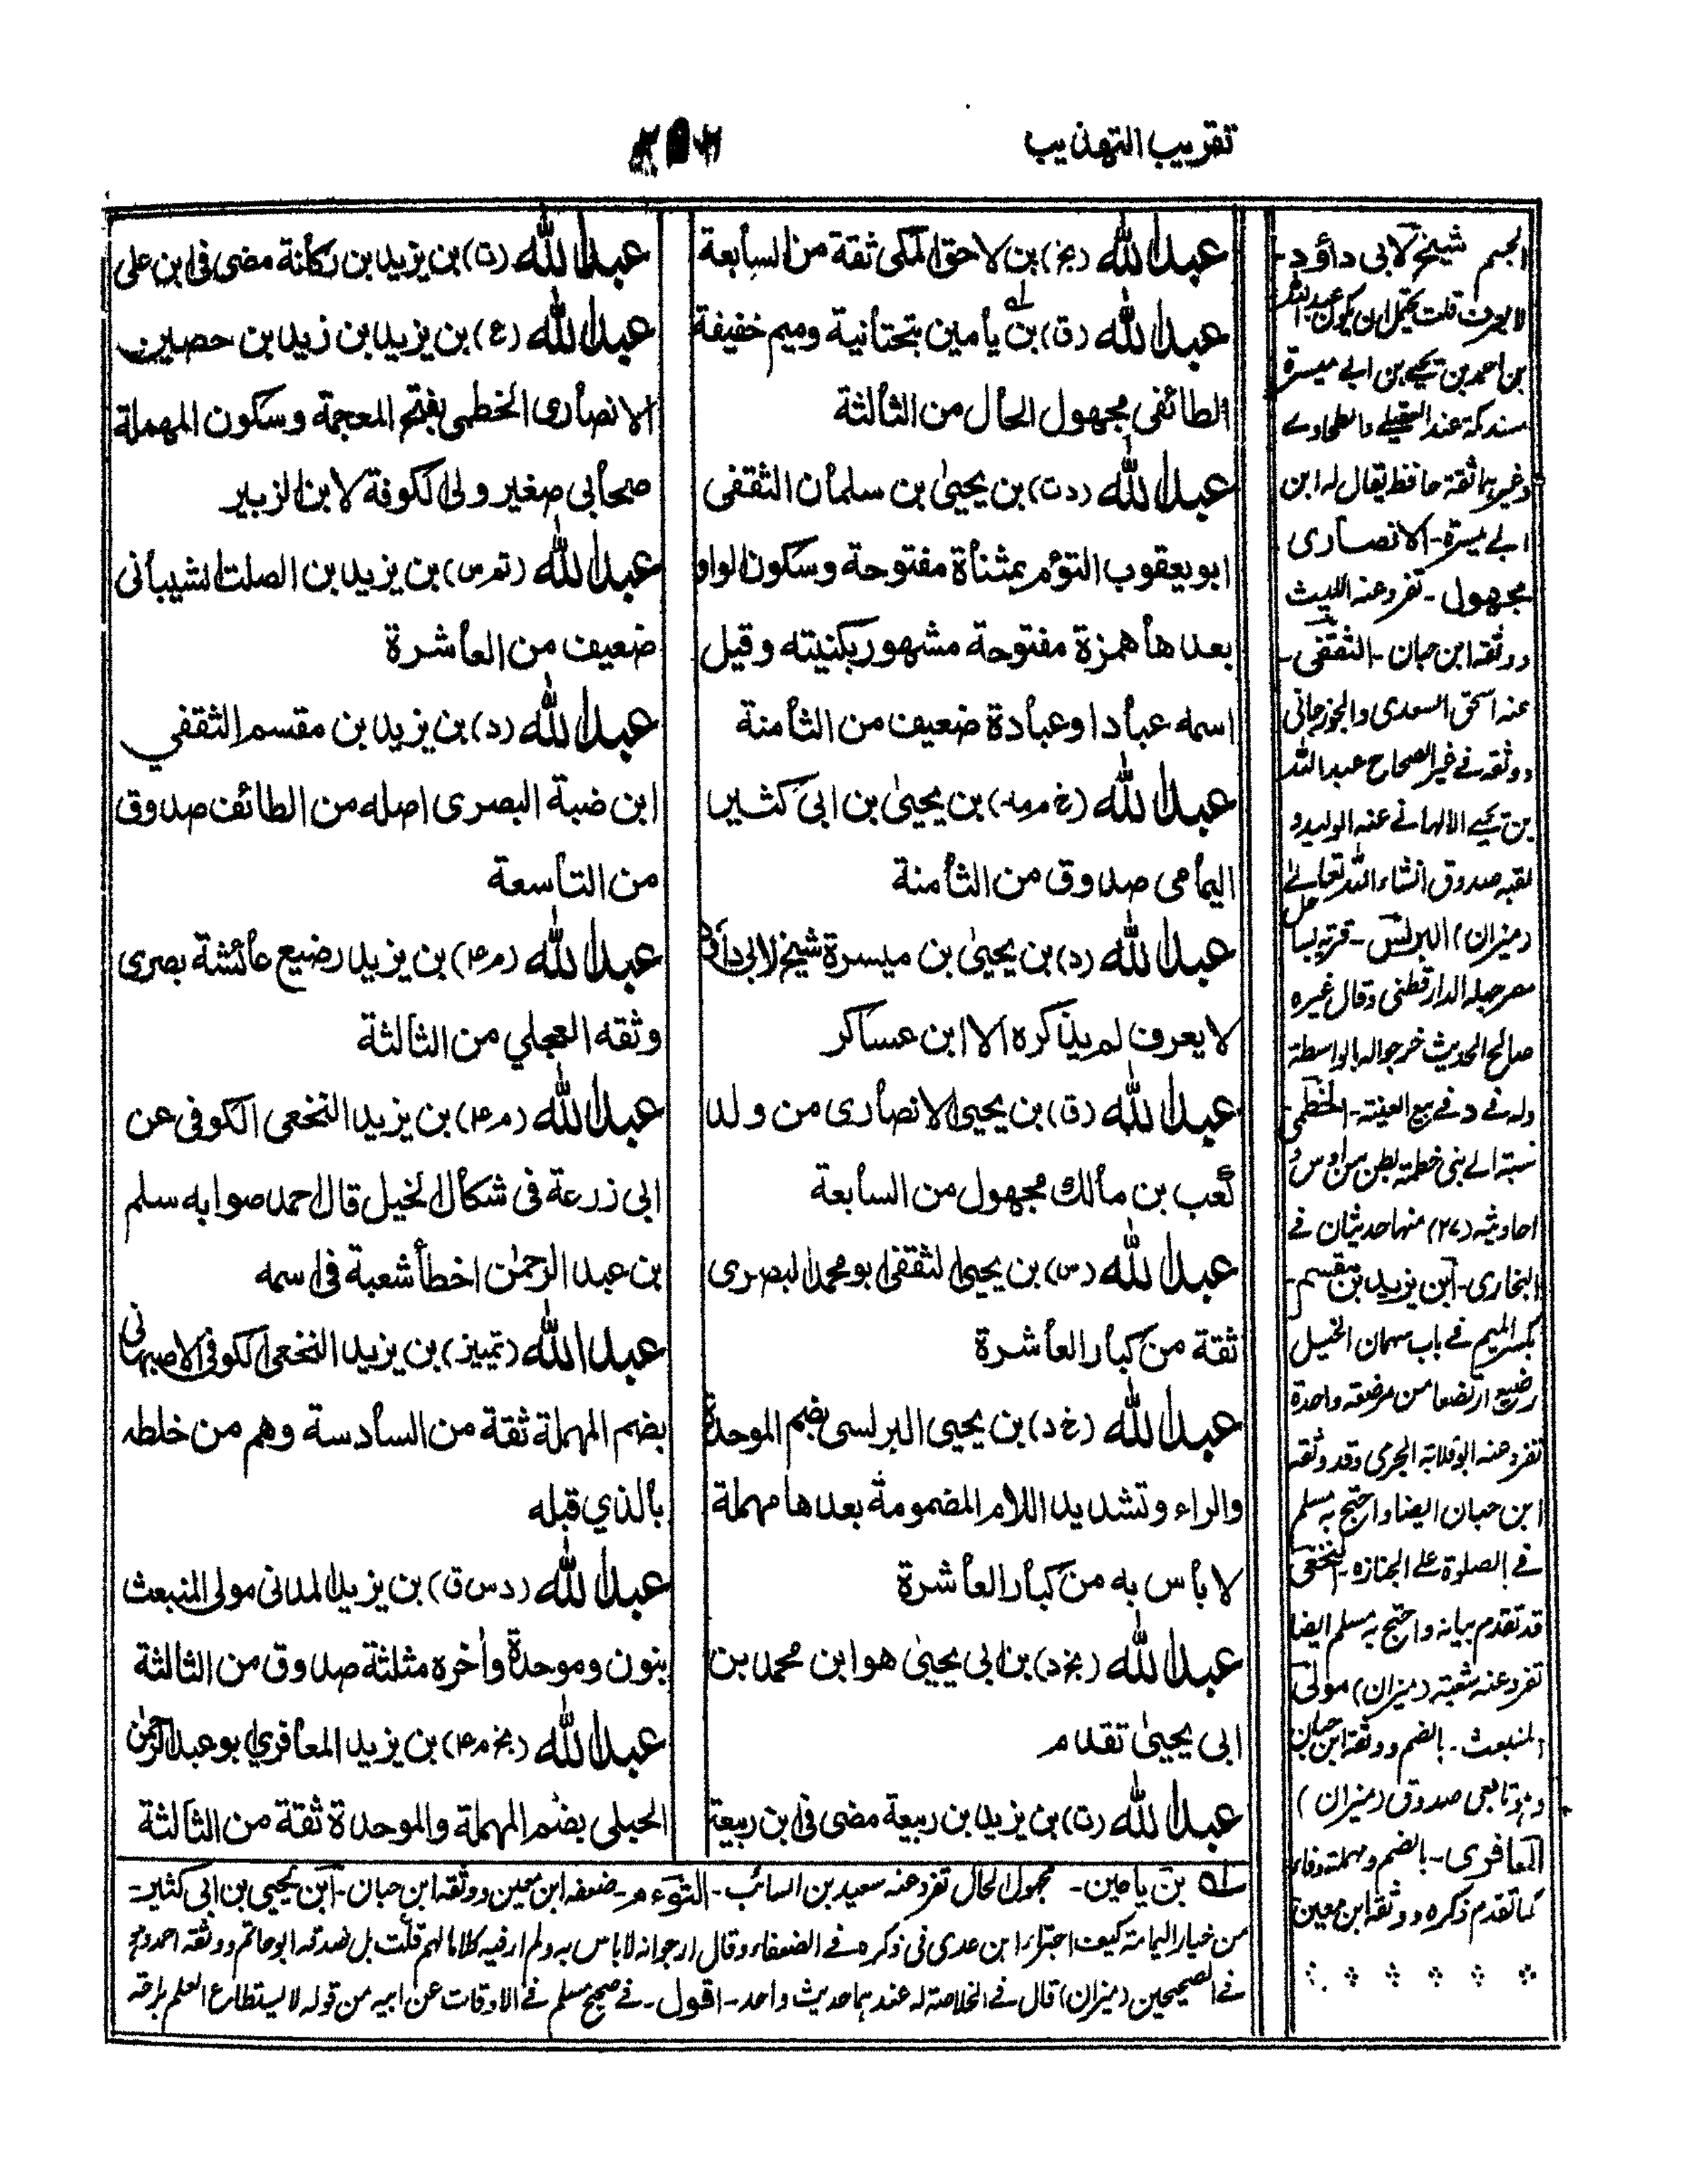 تقريب التهذيب
عبدالله (بخ) بن لاحق المكى ثقة من السابعة
عبدالله (ق) بن يامين بتحتانية وميم خفيفة
الطائفى مجهول الحال من الثالثة
عبدالله (دت) بن يحيىٰ بن سلمان الثقفى
ابويعقوب التوٴم بمثناة مفتوحة وسكون الواو
بعدها همزة مفتوحة مشهور بكنيته وقيل
اسمه عباد او عبادة ضعيف من الثامنة
عبدالله (خ م مد) بن يحيىٰ بن ابى كثير
اليمامى صدوق من الثامنة
عبدالله (د) بن يحيىٰ بن ميسرة شيخ لابى داؤد
لا يعرف لم يذكره الا ابن عساكر
عبدالله (ق) بن يحيى الانصارى من ولد
كعب بن مالك مجهول من السابعة
عبدالله (س) بن يحيى الثقفى ابو محمد البصرى
ثقة من كبار العاشرة
عبدالله (خ د) بن يحيى البرلسى بضم الموحدة
والراء وتشديد اللام المضمومة بعدها مهملة
لا بأس به من كبار العاشرة
عبدالله (بخ د) بن ابى يحيىٰ هو ابن محمد بن
ابى يحيىٰ تقدم
عبدالله (ت) بن يزيد بن ربيعة مضى فى ابن ربيعة
عبدالله (ت) بن يزيد بن ركانة مضى فى ابن على
عبدالله (ع) بن يزيد بن زيد بن حصين
الانصارى الخطمى بفتح المعجمة وسكون المهملة
صحابى صغير ولى الكوفة لابن الزبير
عبدالله (تم س) بن يزيد بن الصلت الشيبانى
ضعيف من العاشرة
عبدالله (د) بن يزيد بن مقسم الثقفي
ابن ضبة البصرى اصله من الطائف صدوق
من التاسعة
عبدالله (م ۴) بن يزيد رضيع عائشة بصرى
وثقه العجلي من الثالثة
عبدالله (م ۴) بن يزيد النخعى الكوفى عن
ابى زرعة فى شكال الخيل قال احمد صوابه سلم
بن عبد الرحمٰن اخطأ شعبة فى اسمه
عبدالله (تمييز) بن يزيد النخعى الكوفى الاصبهانى
بضم المهملة ثقة من السادسة وهم من خلطه
بالذي قبله
عبدالله (د س ق) بن يزيد المدنى مولى المنبعث
بنون وموحدة وأخره مثلثة صدوق من الثالثة
عبدالله (بخ م ۴) بن يزيد المعافري ابو عبدالرحمٰن
الحبلى بضم المهملة والموحدة ثقة من الثالثة
شيخ لابى داؤد-
لا يعرف قلت يحتمل ان يكون عبدالله
بن احمد بن يحيے بن ابے ميسرة
وغيرهما ثقة حافظ يقال له ابن
ابے ميسرة- الانصارى
مجهول- تفرد عنه الليث
ووثقه ابن حبان- الثقفى-
عنه اسحق السعدى والجوزجانى
ووثقه فے غير الصحاح عبدالله
بن يحيے الالهانے عنه الوليد و
لقبه صدوق انشاء الله تعالےٰ
(ميزان) البرلسى- قرية بساحل
مصر جهله الدارقطنى وقال غيره
صالح الحديث خرجوا له بالواسطة
وله فے د فے بيع العينة- الخطمى-
نسبة الے بنى خطمة بطن من اوس و
احاديثه (۲۷) منها حديثان فے
البخارى- ابن يزيد بن مقسم
بكسر الميم فے باب سهمان الخيل
رضيع ارتضعا من مرضعة واحدة
تفرد عنه ابوقلابة الجرمى وقد وثقه
ابن حبان ايضا واحتج به مسلم
فے الصلوة علے الجنازه- النخعى
قد تقدم بيانه واحتج به مسلم ايضا
تفرد عنه شعبة (ميزان) مولى
المنبعث- بالضم ووثقه ابن حبان
وهو تابعى صدوق (ميزان)
المعافرى- بالضم ومهملة وفاء
كما تقدم ذكره ووثقه ابن معين
له بن يامين- مجهول الحال تفرد عنه سعيد بن السائب- التوءم- ضعفه ابن معين ووثقه ابن حبان- ابن يحيى بن ابى كثير-
من خيار اليمامة كيف اجترأ ابن عدى فى ذكره فے الضعفاء وقال ارجو انه لا باس به ولم ار فيه كلاما لهم قلت بل صدقه ابو حاتم ووثقه احمد
فے الصحيحين (ميزان) قال فے الخلاصة له عندهما حديث واحد- اقول- فے صحيح مسلم فے الاوقات عن ابيه من قوله لا يستطاع العلم براحة